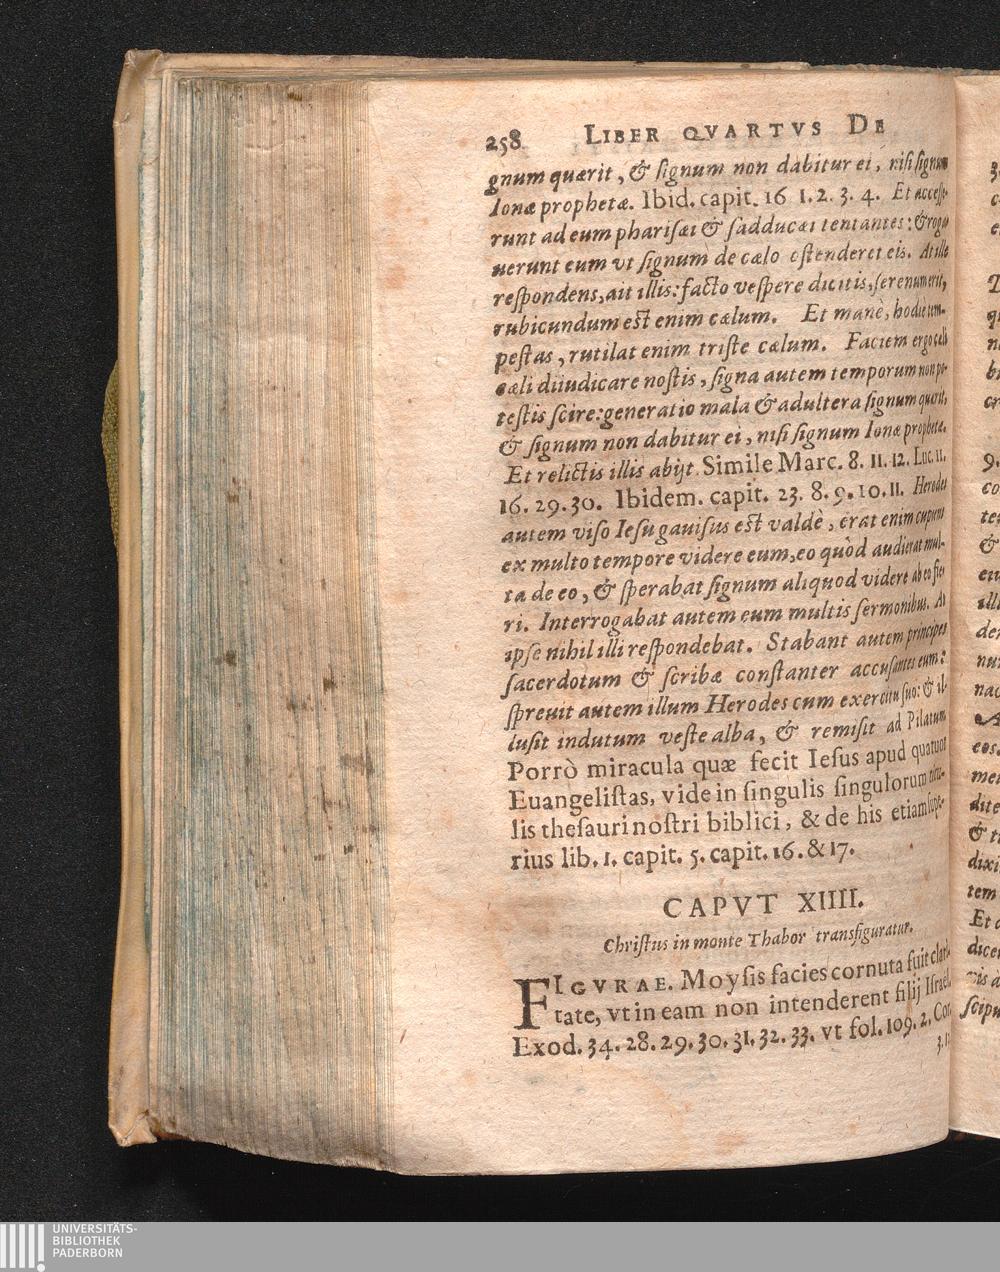 258 LIBER QVARTVS DE
gnum quærit, & ſignum non dabitur ei, niſi ſignum
Ionæ prophetæ. Ibid. capit. 16 1. 2. 3. 4. Et acceſſe-
runt ad eum phariſæi & ſadducæi tentantes: & roga
uerunt eum vt ſignum de cælo oſtenderet eis. At ille
reſpondens, ait illis: facto veſpere dicitis, ſerenum erit,
rubicundum est enim cælum. Et manè, hodie tem-
peſtas, rutilat enim triſte cælum. Faciem ergo cæli
cæli diiudicare noſtis, ſigna autem temporum non po-
teſtis ſcire: generatio mala & adultera ſignum quærit,
& ſignum non dabitur ei, niſi ſignum Ionæ prophetæ.
Et relictis illis abijt. Simile Marc. 8. 11. 12. Luc. 11.
16. 29. 30. Ibidem. capit. 23. 8. 9. 10. 11. Herodes
autem viſo Ieſu gauiſus est valdè, erat enim cupiens
ex multo tempore videre eum, eo quòd audierat mul-
ta de eo, & ſperabat ſignum aliquod videre ab eo fie-
ri. Interrogabat autem eum multis ſermonibus. At
ipſe nihil illi reſpondebat. Stabant autem principes
ſacerdotum & ſcribæ conſtanter accuſantes eum:
ſpreuit autem illum Herodes cum exercitu ſuo: & il-
luſit indutum veſte alba, & remiſit ad Pilatum
Porrò miracula quæ fecit Ieſus apud quatuor
Euangeliſtas, vide in ſingulis ſingulorum titu-
lis theſauri noſtri biblici, & de his etiam ſupe-
rius lib. 1. capit. 5. capit. 16. & 17.
CAPVT XIIII.
Chriſtus in monte Thabor transfiguratur.
FIGVRAE. Moyſis facies cornuta fuit clari-
tate, vt in eam non intenderent filij Iſrael.
Exod. 34. 28. 29. 30. 31. 32. 33. vt fol. 109. 2. Cor.
UNIVERSITÄTS-
BIBLIOTHEK
PADERBORN